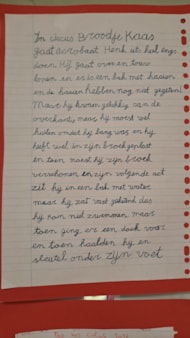 In circus Broodje Kaas
gaat acrobaat Henk iets heel engs
doen. Hij gaat over een touw
lopen en er is een bak met haaien
en de haaien hebben nog niet gegeten!
Maar hij kwam gelukkig aan de
overkant, maar hij moest wel
huilen omdat hij bang was en hij
heeft wel in zijn broek geplast
en toen moest hij zijn broek
verschonen en zijn volgende act
zit hij in een bak met water
maar hij zat vast geketend dus
hij kon niet zwemmen maar
toen ging er een doek voor
en toen haalden hij een
sleutel onder zijn voet